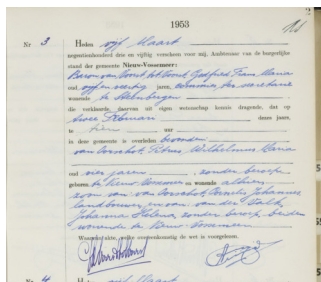 1953
Nr 3 Heden vijf Maart
negentienhonderd drie en vijftig verscheen voor mij, Ambtenaar van de burgerlijke
stand der gemeente Nieuw-Vossemeer:
Baron van Voorst tot Voorst, Godfried Frans Maria
oud vijf en veertig jaren,
wonende te Steenbergen
die verklaarde, daarvan uit eigen wetenschap kennis dragende, dat op
twee Februari dezes jaars,
te tien uur
in deze gemeente is overleden bevonden
van Oorschot, Petrus Wilhelmus Maria
oud vier jaren, zonder beroep
geboren te Nieuw-Vossemeer en wonende alhier
zoon van van Oorschot, Cornelis Johannes
landbouwer, en van van der
Johanna Helena, zonder beroep, beiden
wonende te Nieuw-Vossemeer
Waarvan akte, welke overeenkomstig de wet is voorgelezen.
Nr 4 Heden vijf Maart